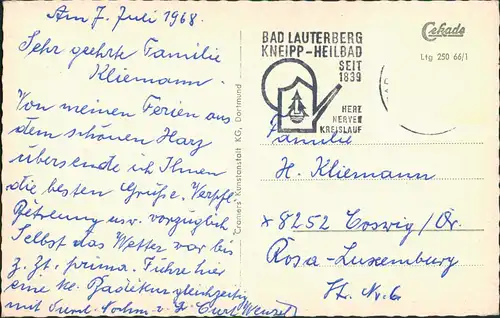 Am 7. Juli 1968.
Sehr geehrte Familie
Kliemann.
Von meinen Ferien aus
dem schönen Harz
übersende ich Ihnen
die besten Grüße. Verpfl.
Betreuung usw. vorzüglich
Selbst das Wetter war bis
z. Zt. prima. Führe hier
eine kl. Badekur gleichzeitig
mit
Curt Wenzel
Cramers Kunstanstalt KG, Dortmund
BAD LAUTERBERG
KNEIPP-HEILBAD
SEIT
1839
HERZ
NERVEN
KREISLAUF
Cekade
Ltg 250 66/1
Familie
H. Kliemann
x 8252 Coswig/Dr.
Rosa-Luxemburg
Str. Nr. 6